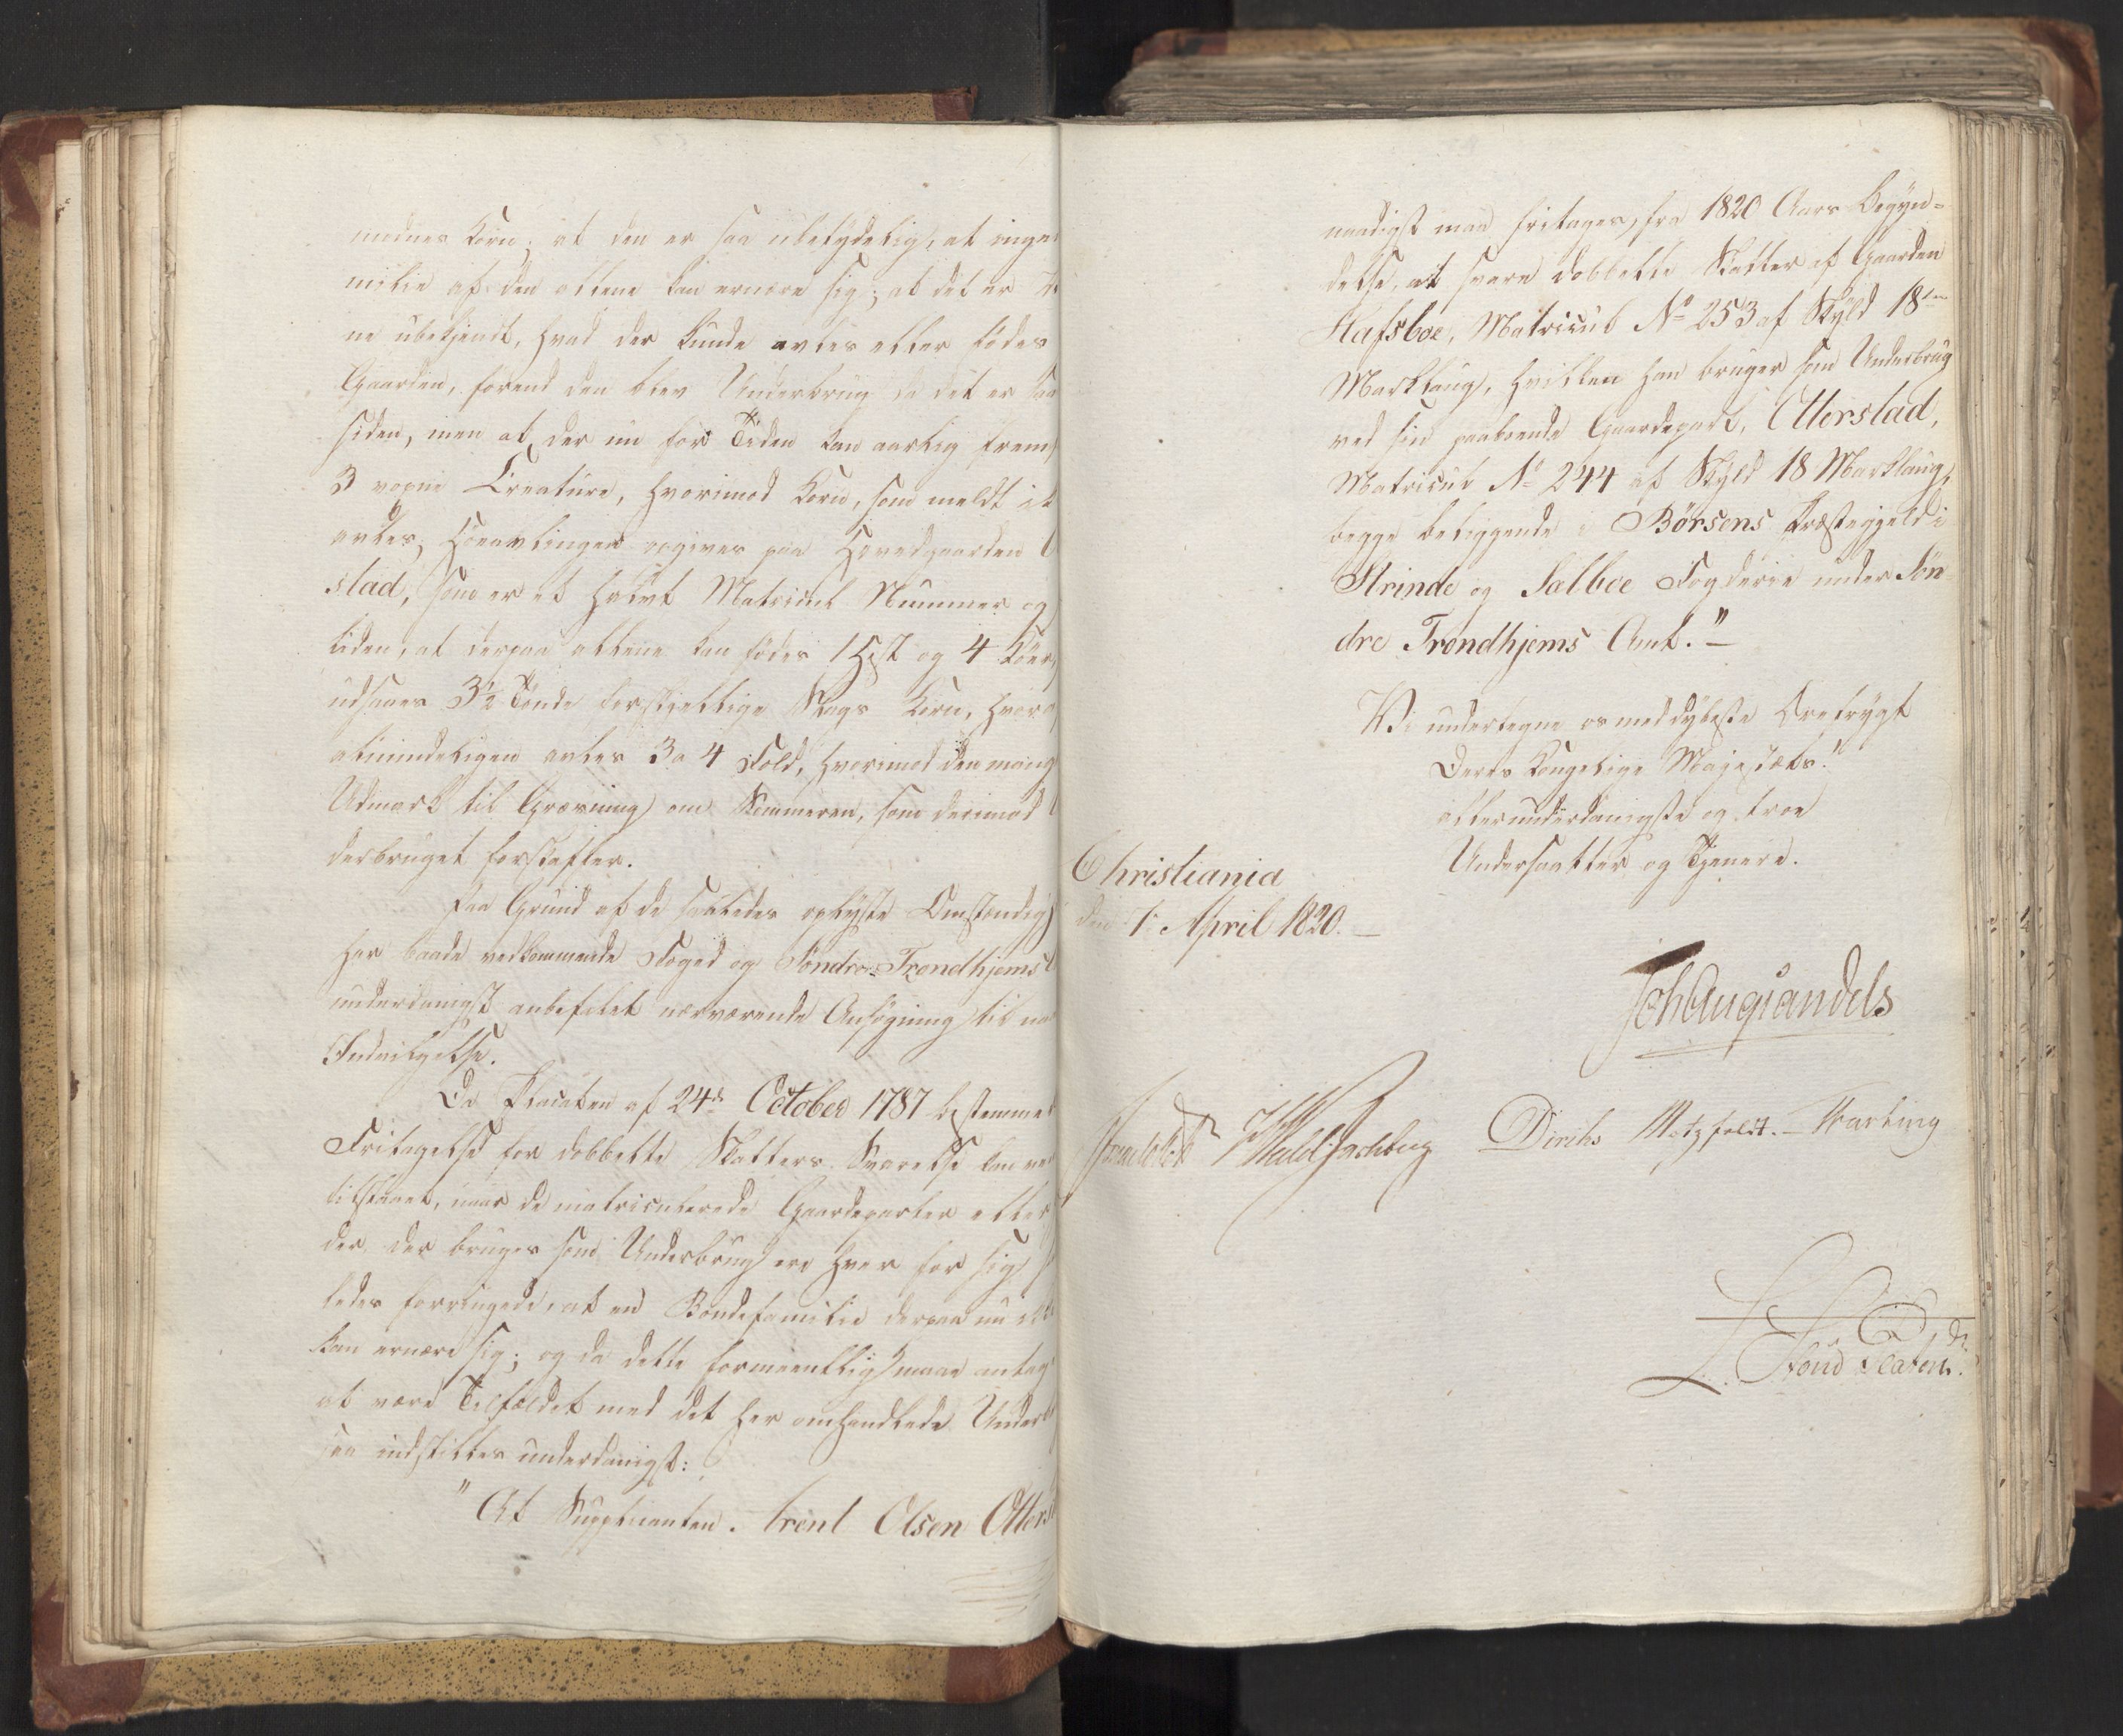 modnes Korn; at den er saa ubetydelig, at inge
milie af den allene kan ernære sig; at det er
ne ubekjendt, hvad der kunde avles eller födes
Gaarden, forend den blev Underbrug da det er saa
siden, men at der nu for Tiden kan aarlig frem
3 voxne Creature, hvorimod Korn, som meldt ik
avles, Höeavlingen opgives paa Hovedgaarden
stad, som er et halvt Matricul Nummer og
liden, at derpaa allene kan födes 1 Hest og 4 Köer,
udsaaes 3½ Tönde forskjellige Slags Korn, hvor
almindeligen avles 3 a 4 Fold, hvorimod den mang
Udmark til Græsning om Sommeren, som derimod
derbruget forskaffer.
Paa Grund af de saaledes oplyste Omstændig
har baade vedkommende Foged og Söndre Trondhjems
underdanigst anbefalet nærværende Ansögning til na
Indvilgelse.
Da Placaten af 24de October 1787 bestemmer
Fritagelse for dobbelte Skatters Svarelse kan ve
tilstaaet, naar de matriculerede Gaardeparter eller
der, der bruges som Underbrug ere hver for sig
ledes forringede, at en Bondefamilie derpaa nu ik
kan ernære sig; og da dette formeentlig maae antag
at være Tilfældet med det her omhandlede Under
saa indstilles underdanigst:
"At Supplicanten Arent Olsen Otters
naadigst maa fritages, fra 1820 Aars Begyn=
delse, at svare dobbelte Skatter af Gaarden
Hafsboe, Matricul No 253 af Skyld 18
Marklaug, hvilken han bruger som Underbrug
ved sin paaboende Gaardepart, Otterstad,
Matricul No 244 af Skyld 18 Marklaug,
begge beliggende i Börsens Præstegjeld i
Strinde og Sælboe Fogderie under Sön
dre Trondhjems Amt."—
Vi undertegne os med dybeste Ærefrygt
Deres Kongelige Majestæts!
allerunderdanigste og troe
Undersaatter og Tjenere.
Christiania
den 1. April 1820.—
Joh Aug Sandels
Diriks Motzfeldt. — Harbing